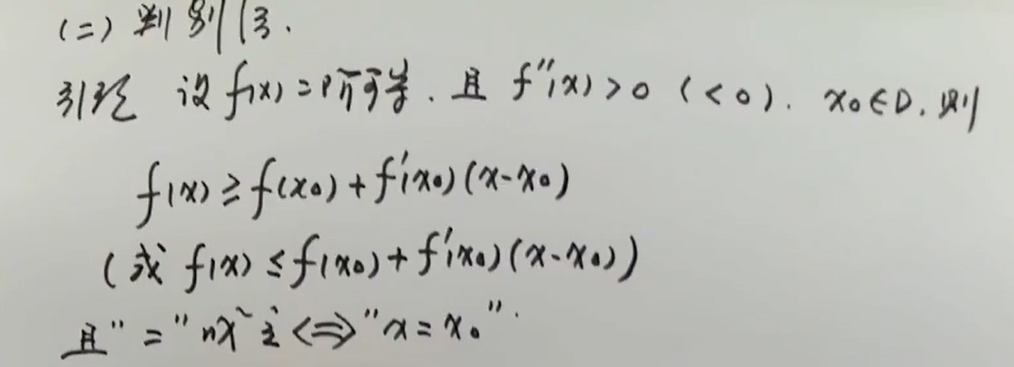 (二) 判别法.
引理 设 f(x) 二阶可导. 且 f''(x)>0 (<0). x₀∈D. 则
f(x)≥f(x₀)+f'(x₀)(x-x₀)
(或 f(x)≤f(x₀)+f'(x₀)(x-x₀))
且"="成立<=>"x=x₀".